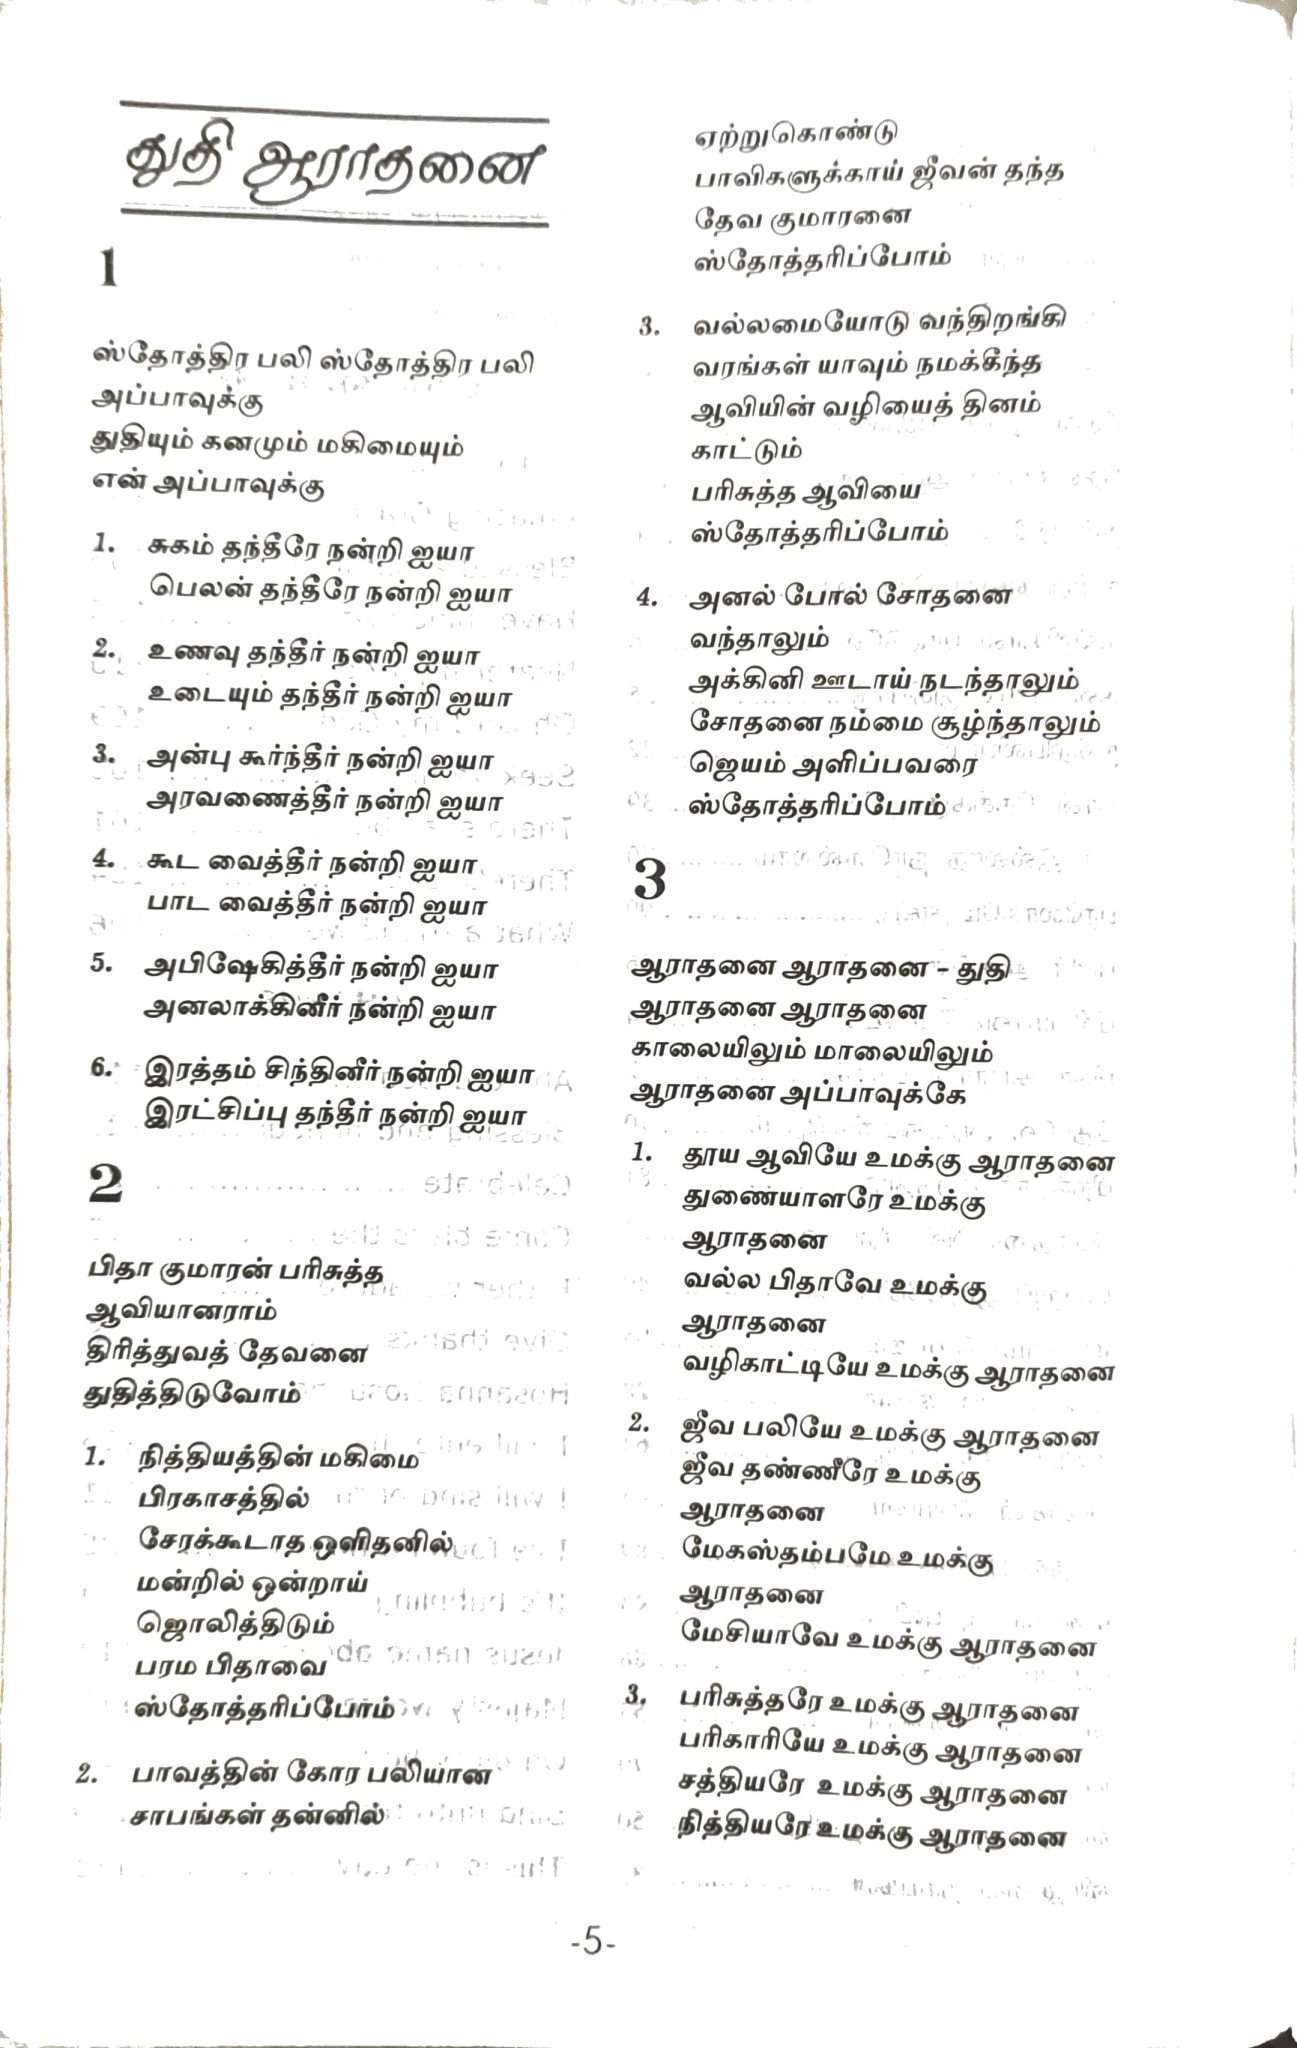 துதி ஆராதனை
1
ஸ்தோத்திர பலி ஸ்தோத்திர பலி
அப்பாவுக்கு
துதியும் கனமும் மகிமையும்
என் அப்பாவுக்கு
1. சுகம் தந்தீரே நன்றி ஐயா
பெலன் தந்தீரே நன்றி ஐயா
2. உணவு தந்தீர் நன்றி ஐயா
உடையும் தந்தீர் நன்றி ஐயா
3. அன்பு கூர்ந்தீர் நன்றி ஐயா
அரவணைத்தீர் நன்றி ஐயா
4. கூட வைத்தீர் நன்றி ஐயா
பாட வைத்தீர் நன்றி ஐயா
5. அபிஷேகித்தீர் நன்றி ஐயா
அனலாக்கினீர் நன்றி ஐயா
6. இரத்தம் சிந்தினீர் நன்றி ஐயா
இரட்சிப்பு தந்தீர் நன்றி ஐயா
2
பிதா குமாரன் பரிசுத்த
ஆவியானராம்
திரித்துவத் தேவனை
துதித்திடுவோம்
1. நித்தியத்தின் மகிமை
பிரகாசத்தில்
சேரக்கூடாத ஒளிதனில்
மன்றில் ஒன்றாய்
ஜொலித்திடும்
பரம பிதாவை
ஸ்தோத்தரிப்போம்
2. பாவத்தின் கோர பலியான
சாபங்கள் தன்னில்
ஏற்றுகொண்டு
பாவிகளுக்காய் ஜீவன் தந்த
தேவ குமாரனை
ஸ்தோத்தரிப்போம்
3. வல்லமையோடு வந்திறங்கி
வரங்கள் யாவும் நமக்கீந்த
ஆவியின் வழியைத் தினம்
காட்டும்
பரிசுத்த ஆவியை
ஸ்தோத்தரிப்போம்
4. அனல் போல் சோதனை
வந்தாலும்
அக்கினி ஊடாய் நடந்தாலும்
சோதனை நம்மை சூழ்ந்தாலும்
ஜெயம் அளிப்பவரை
ஸ்தோத்தரிப்போம்
3
ஆராதனை ஆராதனை – துதி
ஆராதனை ஆராதனை
காலையிலும் மாலையிலும்
ஆராதனை அப்பாவுக்கே
1. தூய ஆவியே உமக்கு ஆராதனை
துணையாளரே உமக்கு
ஆராதனை
வல்ல பிதாவே உமக்கு
ஆராதனை
வழிகாட்டியே உமக்கு ஆராதனை
2. ஜீவ பலியே உமக்கு ஆராதனை
ஜீவ தண்ணீரே உமக்கு
ஆராதனை
மேகஸ்தம்பமே உமக்கு
ஆராதனை
மேசியாவே உமக்கு ஆராதனை
3. பரிசுத்தரே உமக்கு ஆராதனை
பரிகாரியே உமக்கு ஆராதனை
சத்தியரே உமக்கு ஆராதனை
நித்தியரே உமக்கு ஆராதனை
-5-